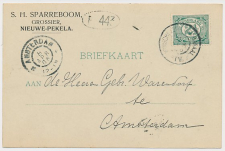 S. H. SPARREBOOM,
GROSSIER,
NIEUWE-PEKELA.
F 442
BRIEFKAART
AMSTERDAM
AAN de Heeren Gebr Warendorf
te
Amsterdam